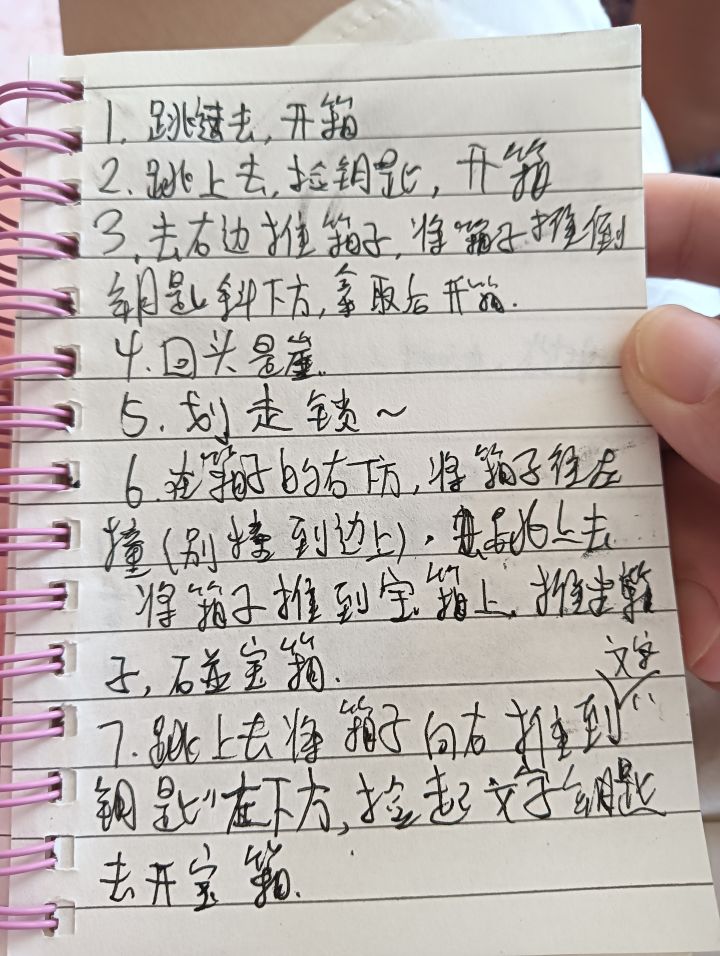 1. 跳过去,开箱
2. 跳上去,捡钥匙,开箱
3. 去右边推箱子,将箱子推到
钥匙斜下方,拿取后开箱.
4. 回头是崖.
5. 划走锁~
6. 在箱子的右下方,将箱子往左
撞(别撞到边上).跳上去
将箱子推到宝箱上,推走箱
子,石碰宝箱.
7. 跳上去将箱子向右推到文字“
钥匙”左下方,捡起文字钥匙
去开宝箱.